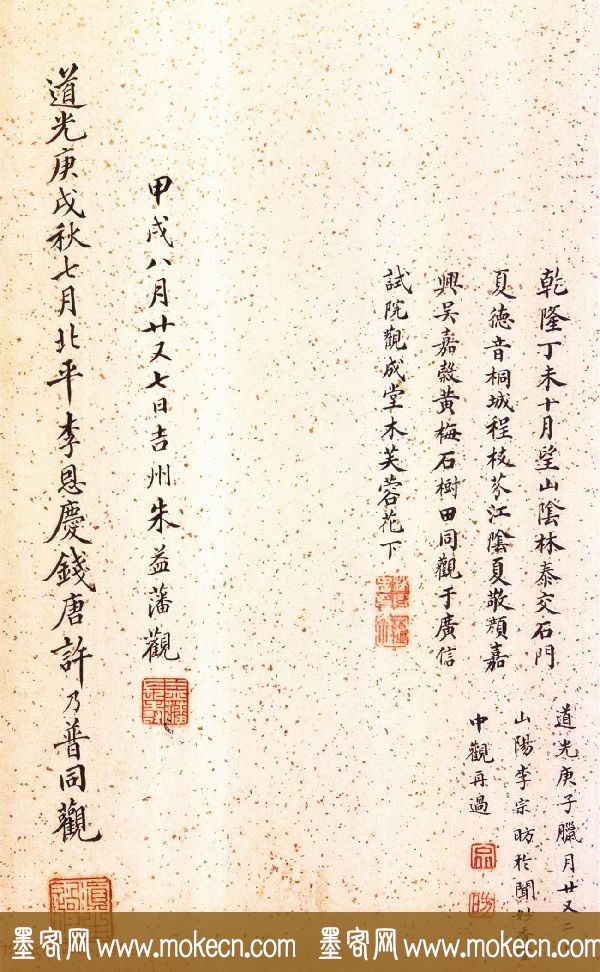 乾隆丁未十月望山陰林泰交石門
夏德音桐城程枚芬江陰夏敬顏嘉
興吴嘉穀黄梅石樹田同觀于廣信
試院觀成堂木芙蓉花下
道光庚子臘月廿又二
山陽李宗昉於聞
中觀再過
甲戌八月廿又七日吉州朱益藩觀
道光庚戌秋七月北平李恩慶錢唐許乃普同觀
墨客网 www.mokecn.com 墨客网 www.mokecn.com